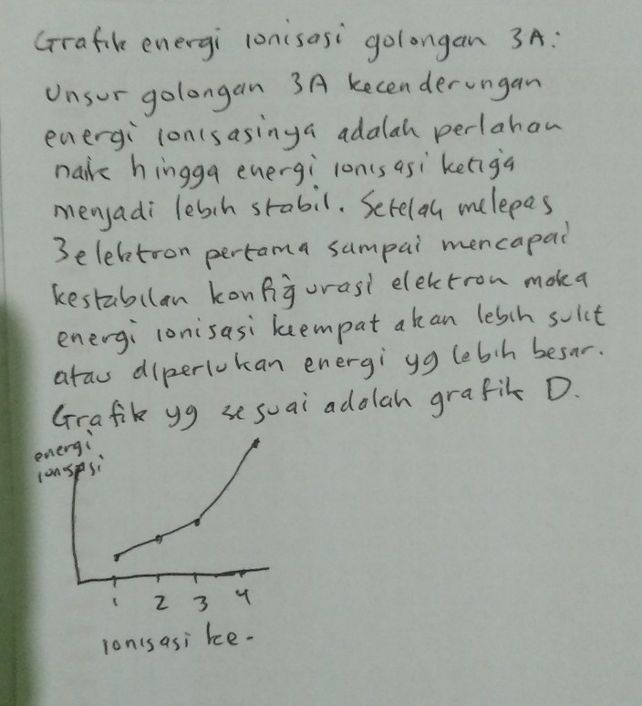 Grafik energi ionisasi golongan 3A:
Unsur golongan 3A kecenderungan
energi ionisasinya adalah perlahan
naik hingga energi ionisasi ketiga
menjadi lebih stabil. Setelah melepas
3 elektron pertama sampai mencapai
kestabilan konfigurasi elektron maka
energi ionisasi keempat akan lebih sulit
atau diperlukan energi yg lebih besar.
Grafik yg sesuai adalah grafik D.
energi
ionisasi
1 2 3 4
ionisasi ke-